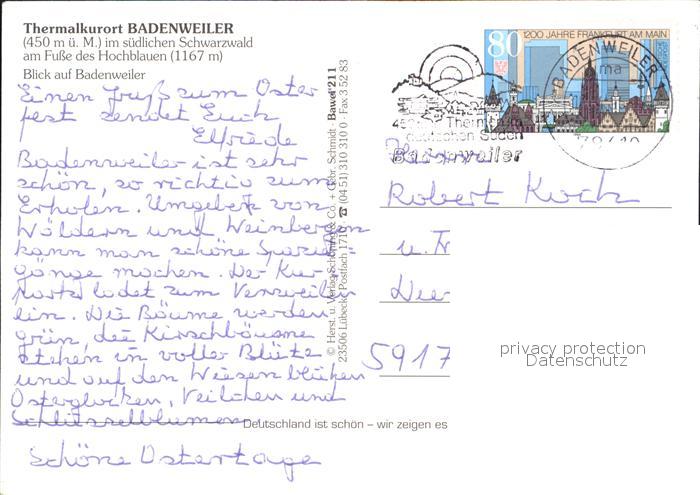 Thermalkurort BADENWEILER
(450 m ü. M.) im südlichen Schwarzwald
am Fuße des Hochblauen (1167 m)
Blick auf Badenweiler
Einen Gruß zum Oster
fest sendet Euch
Elfriede
Badenweiler ist sehr
schön, so richtig zum
Erholen. Umgeben von
Wäldern und Weinbergen
kann man schöne Spazier=
gänge machen. Der Kur-
park ladet zum Verweilen
ein. Die Bäume werden
grün, die Kirschbäume
stehen in voller Blüte
und auf den Wiesen blühen
Osterglocken, Veilchen und
Schlüsselblumen
Schöne Ostertage
© Herst. u. Verlag Schöning & Co. + Gebr. Schmidt Bawei 211
23506 Lübeck Postfach 1710 ☎ (0451) 310 310 0 · Fax 3 52 83
Deutschland ist schön – wir zeigen es
80 1200 JAHRE FRANKFURT AM MAIN
BADENWEILER
ma
Badenweiler
Robert Koch
u. Fr
5917
privacy protection
Datenschutz